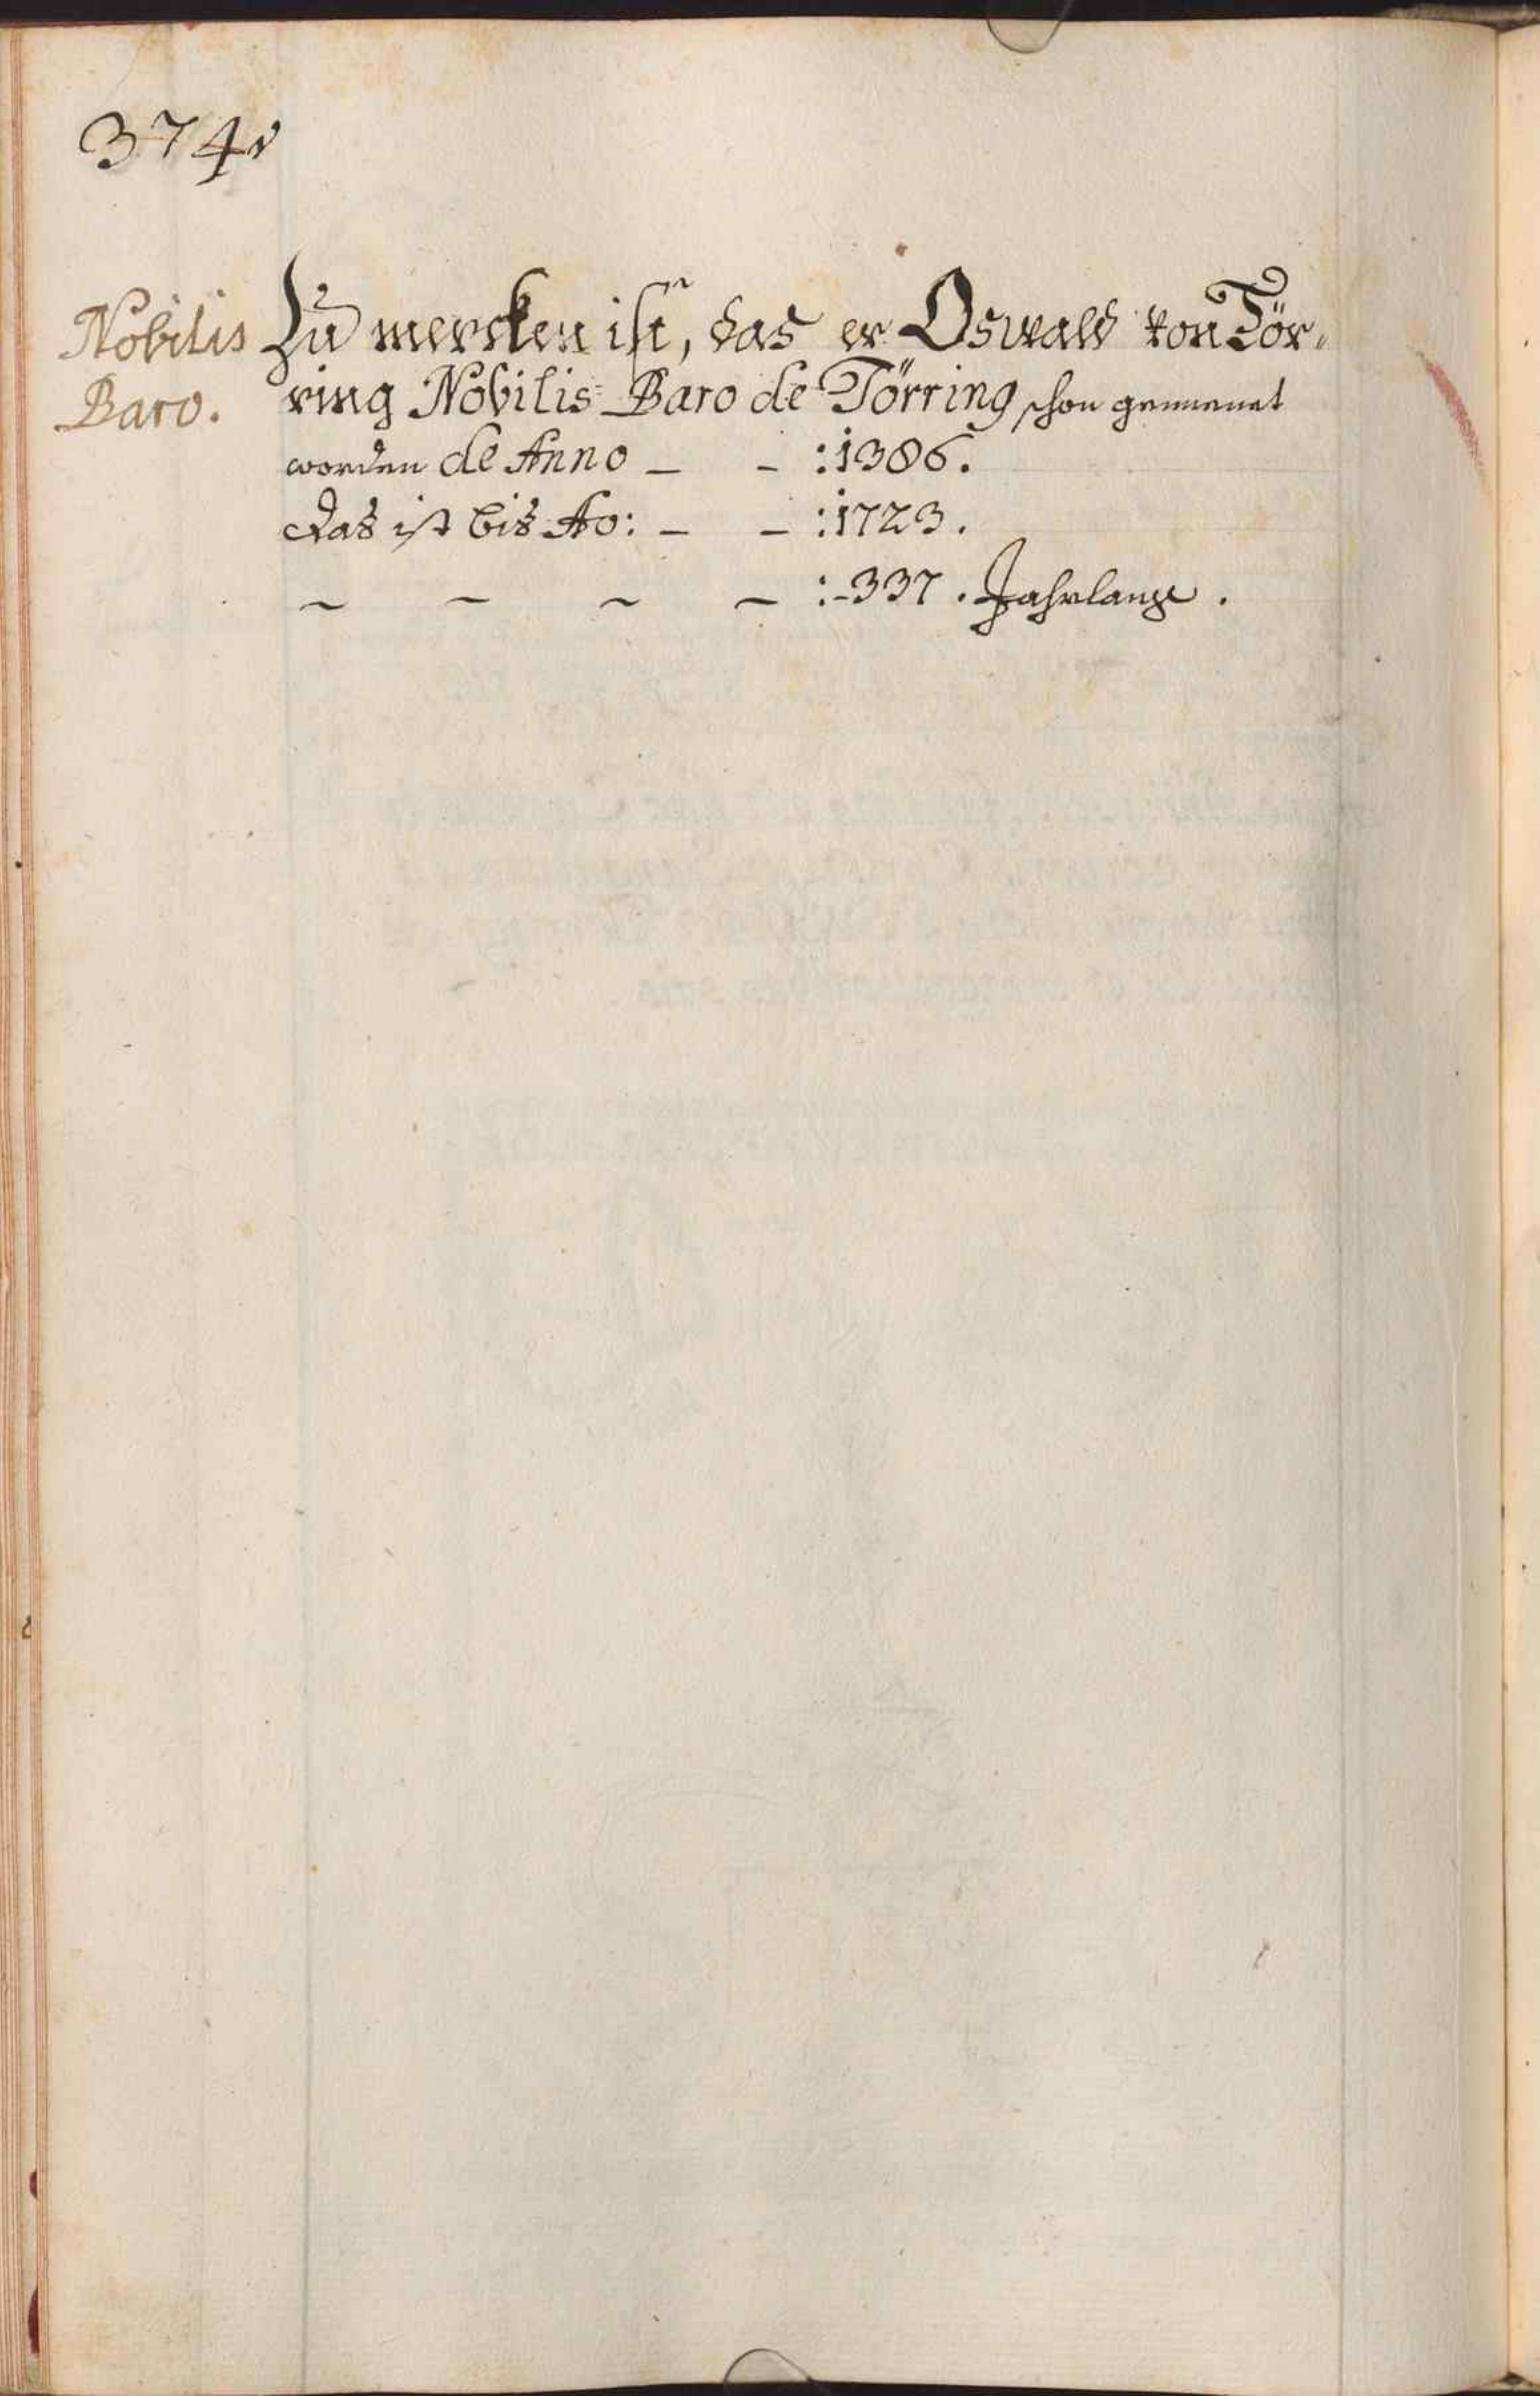 374v
Nobilis
Baro.
Zu mercken ist, das er Oswald von Tör-
ring Nobilis Baro de Törring schon genennet
worden de Anno – – : 1386.
Das ist bis Ao: – – : 1723.
– – – – : 337 . Jahrlange .